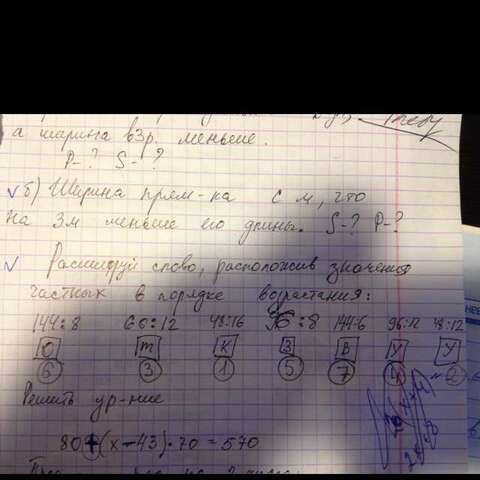 а ширина в 3р. меньше.
P-? S-?
√ б) Ширина прям-ка c м, что
на 3м меньше его длины. S-? P-?
√ Расшифруй слово, расположив значения
частных в порядке возрастания:
144:8 66:12 48:16 96:8 144:6 96:12 48:12
Ю т К З В У У
6 3 1 5 7 4 2
Решить ур-ние
80+(x-43)·70=570